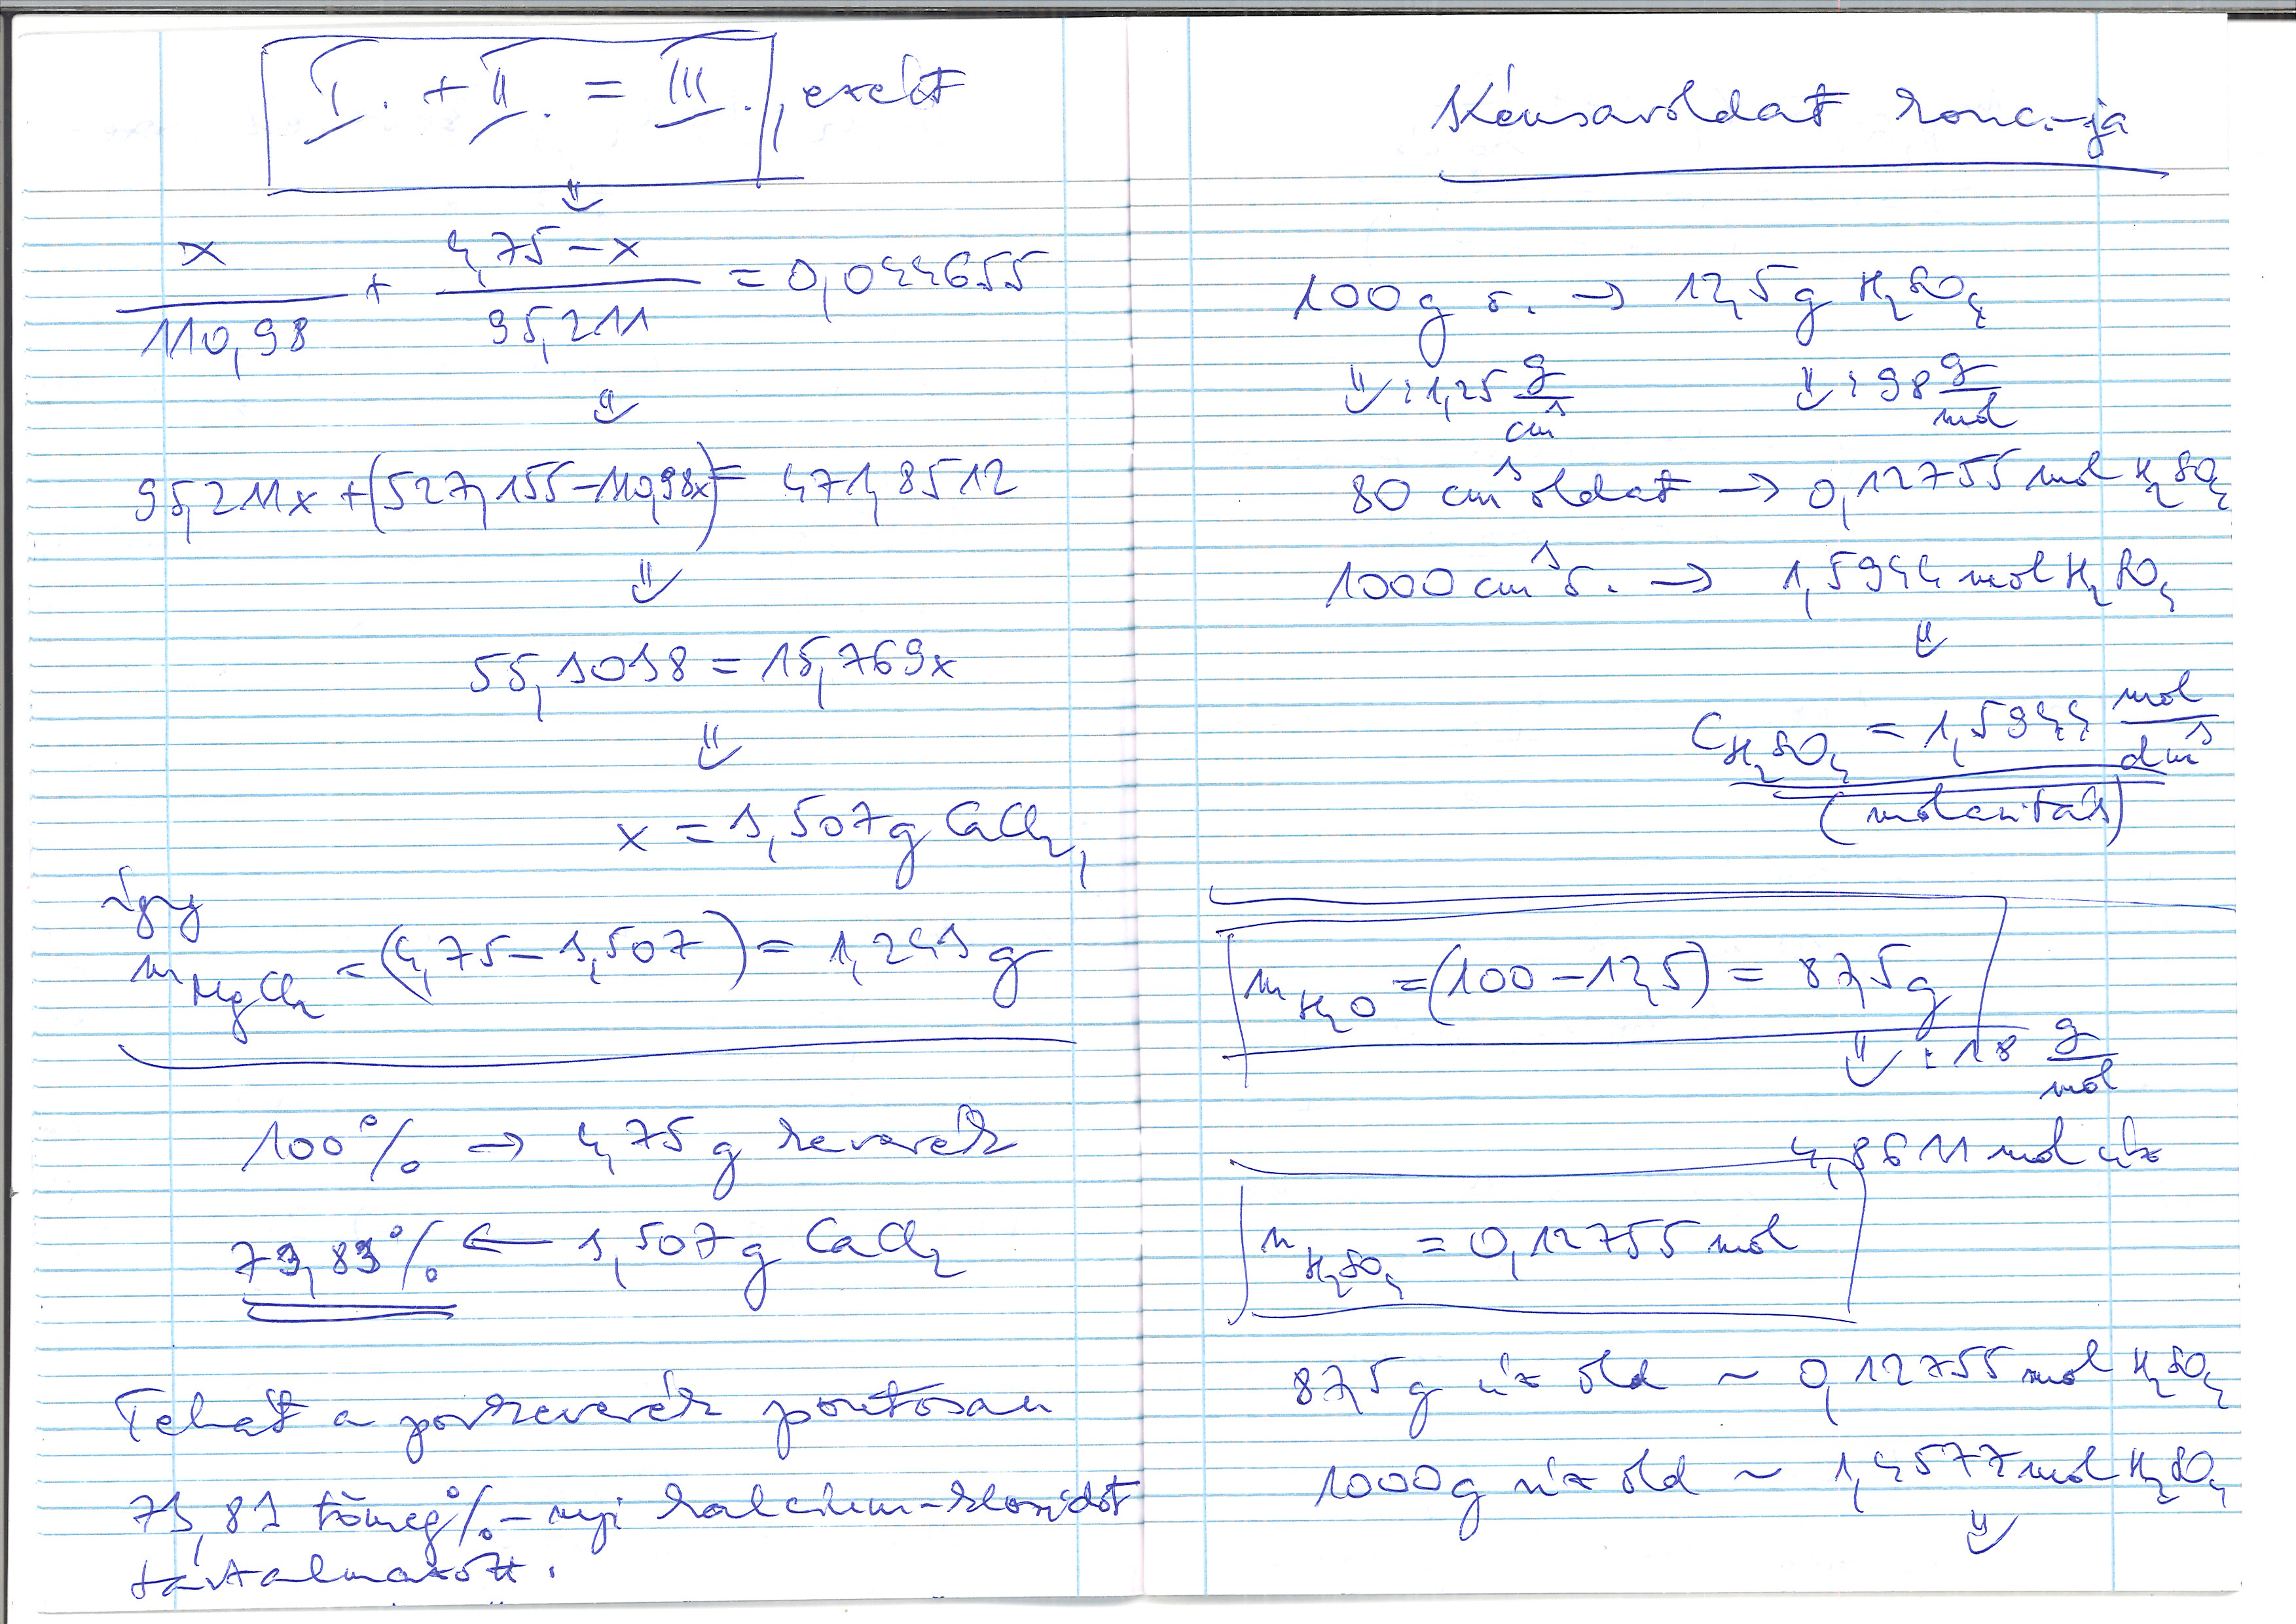 I. + II. = III., ezért
⇓
x/110,98 + (4,75 − x)/95,211 = 0,044655
⇓
95,211x + (527,155 − 110,98x) = 471,8512
⇓
55,3038 = 15,769x
⇓
x = 3,507 g CaCl₂,
így
m MgCl₂ = (4,75 − 3,507) = 1,243 g
100% → 4,75 g keverék
73,83% ← 3,507 g CaCl₂
Tehát a porkeverék pontosan
73,83 tömeg%-nyi kalcium-kloridot
tartalmazott.
Kénsavoldat konc.-ja
100 g o. → 12,5 g H₂SO₄
⇓ : 1,25 g/cm³ ⇓ : 98 g/mol
80 cm³ oldat → 0,12755 mol H₂SO₄
1000 cm³ o. → 1,5944 mol H₂SO₄
⇓
C H₂SO₄ = 1,5944 mol/dm³
(molaritás)
m H₂O = (100 − 12,5) = 87,5 g
⇓ : 18 g/mol
4,8611 mol víz
n H₂SO₄ = 0,12755 mol
87,5 g víz old ~ 0,12755 mol H₂SO₄
1000 g víz old ~ 1,4577 mol H₂SO₄
⇓